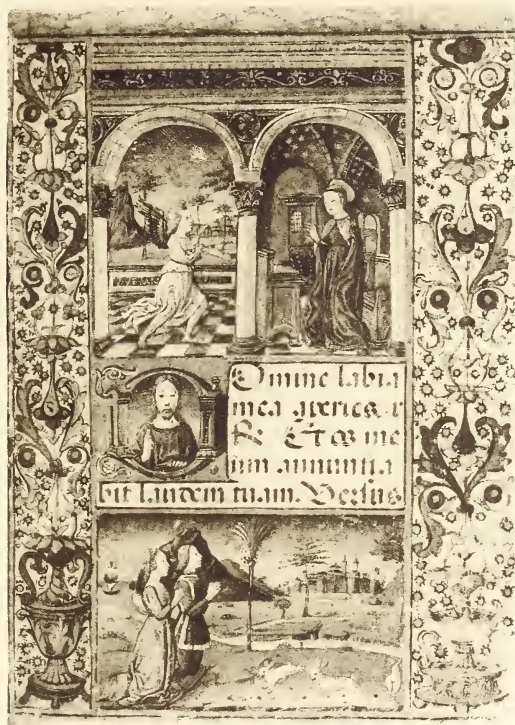 Domine labia
mea aperies. ℟
Et os me
um annuntia
bit laudem tuam. Versus